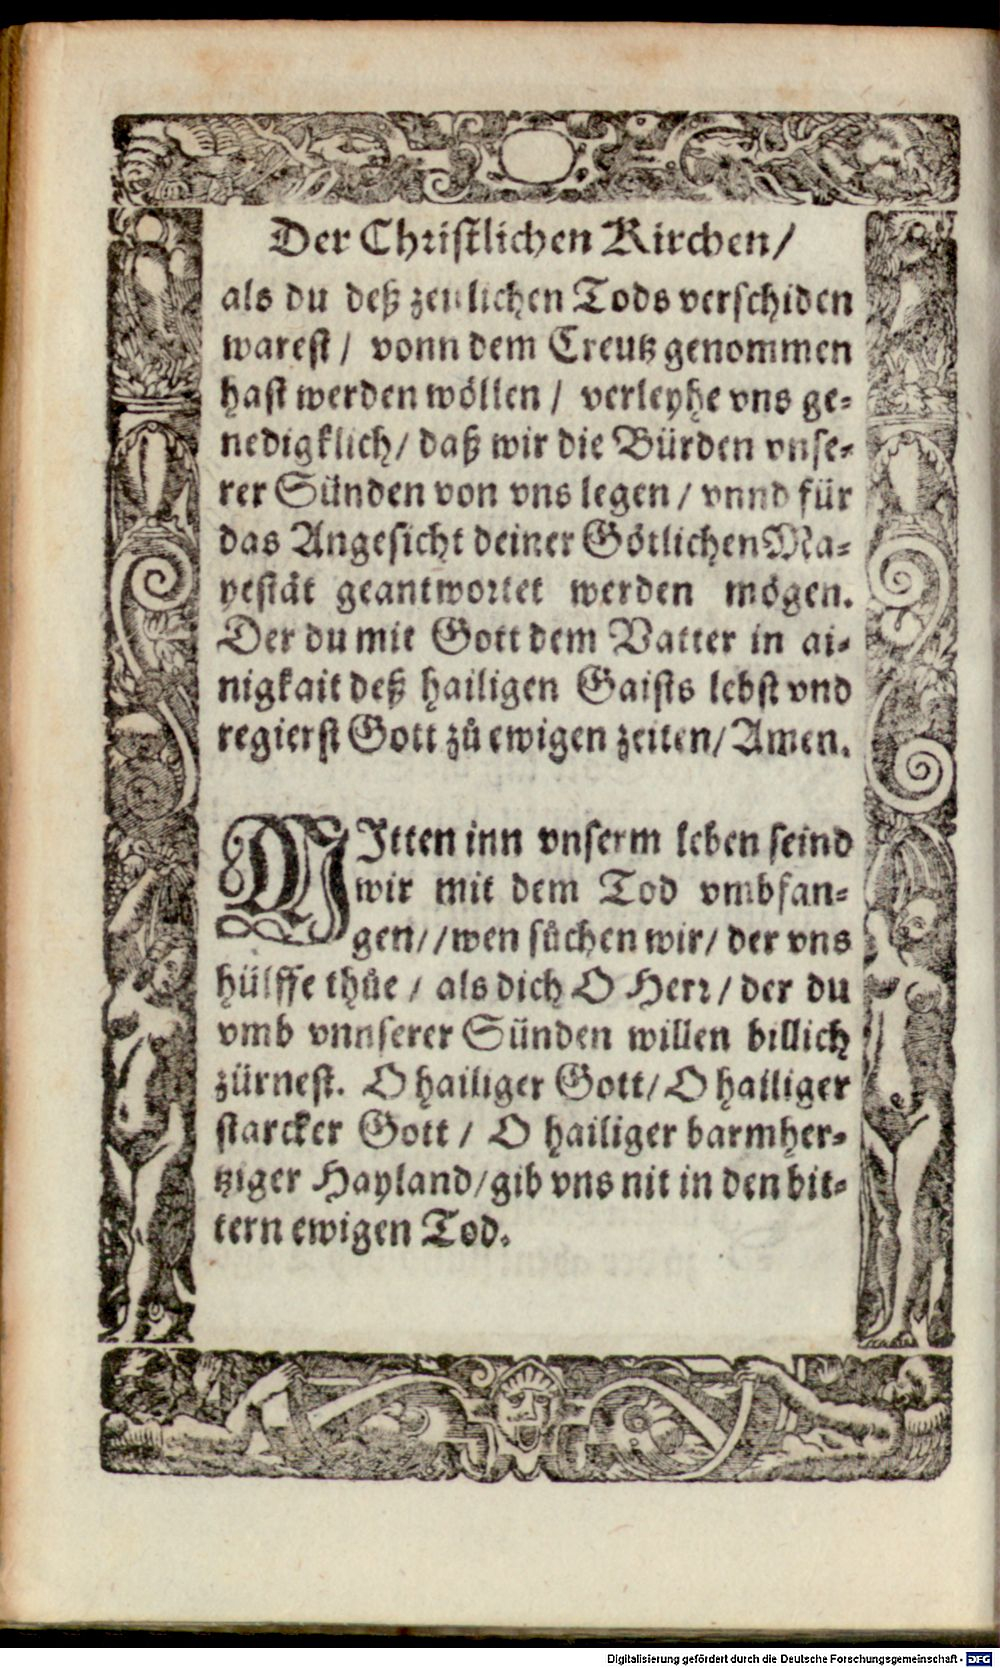 Der Christlichen Kirchen/
als du deß zeitlichen Tods verschiden
warest / vonn dem Creutz genommen
hast werden wöllen / verleyhe vns ge-
nedigklich/ daß wir die Bürden vnse-
rer Sünden von vns legen / vnnd für
das Angesicht deiner Götlichen Ma-
yestät geantwortet werden mögen.
Der du mit Gott dem Vatter in ai-
nigkait deß hailigen Gaists lebst vnd
regierst Gott zů ewigen zeiten/ Amen.
MItten inn vnserm leben seind
wir mit dem Tod vmbfan-
gen/ /wen sůchen wir/ der vns
hülffe thůe / als dich O Herr/ der du
vmb vnnserer Sünden willen billich
zürnest. O hailiger Gott/ O hailiger
starcker Gott / O hailiger barmher-
tziger Hayland/gib vns nit in den bit-
tern ewigen Tod.
Digitalisierung gefördert durch die Deutsche Forschungsgemeinschaft - DFG